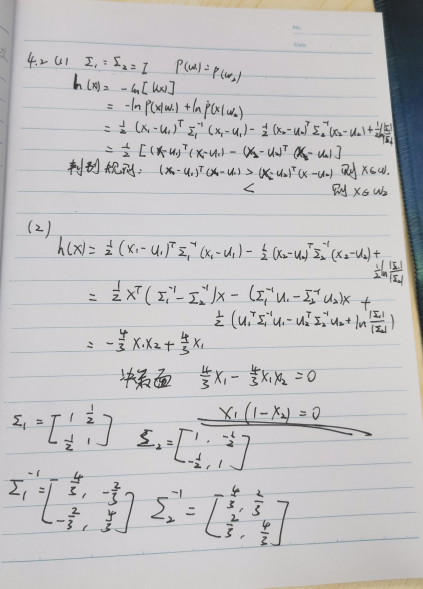 No.
Date
4.2 (1) Σ₁ = Σ₂ = I P(w₁) = P(w₂)
h(x) = -ln[l(x)]
= -ln P(x|w₁) + ln P(x|w₂)
= ½ (x₁-u₁)ᵀ Σ₁⁻¹ (x₁-u₁) - ½ (x₂-u₂)ᵀ Σ₂⁻¹ (x₂-u₂) + ½ ln |Σ₁|/|Σ₂|
= ½ [(x₁-u₁)ᵀ (x₁-u₁) - (x₂-u₂)ᵀ (x₂-u₂)]
判别规则: (x₁-u₁)ᵀ(x₁-u₁) > (x₂-u₂)ᵀ(x-u₂) 则 x∈w₁
< 则 x∈w₂
(2)
h(x) = ½ (x₁-u₁)ᵀ Σ₁⁻¹ (x₁-u₁) - ½ (x₂-u₂)ᵀ Σ₂⁻¹ (x₂-u₂) + ½ ln |Σ₁|/|Σ₂|
= ½ xᵀ (Σ₁⁻¹ - Σ₂⁻¹) x - (Σ₁⁻¹ u₁ - Σ₂⁻¹ u₂) x +
½ (u₁ᵀ Σ₁⁻¹ u₁ - u₂ᵀ Σ₂⁻¹ u₂ + ln |Σ₁|/|Σ₂|)
= -4/3 x₁x₂ + 4/3 x₁
决策面 4/3 x₁ - 4/3 x₁x₂ = 0
x₁(1-x₂) = 0
Σ₁ = [1 ½; ½ 1] Σ₂ = [1, -½; -½, 1]
Σ₁⁻¹ = [4/3, -2/3; -2/3, 4/3] Σ₂⁻¹ = [4/3, 2/3; 2/3, 4/3]